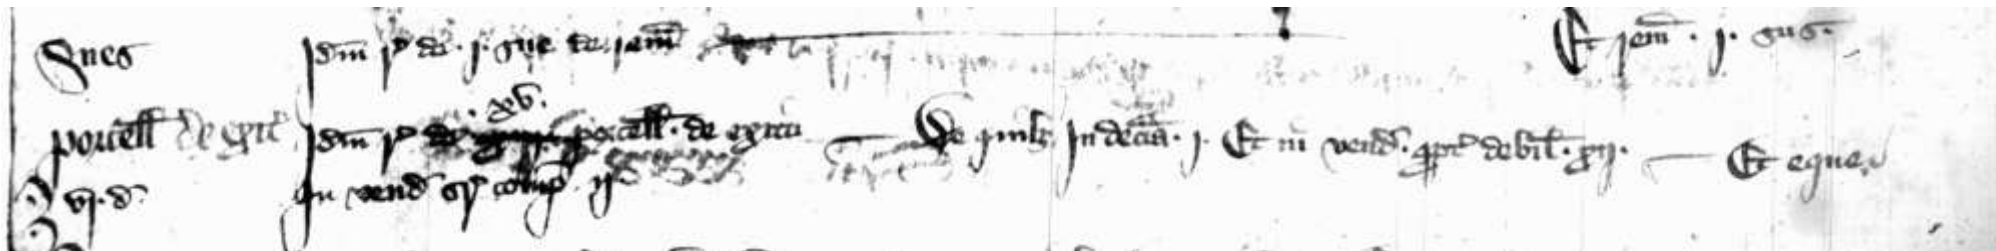 Sues Idm r de . j . sue de rem Et rem . j . sus .
. xv .
porcell de exit Idm r de porcell . de exitu De quibz In decia . j . Et in vend . ppt debil . xij . Et eque
vj . d In vend sr comp ij